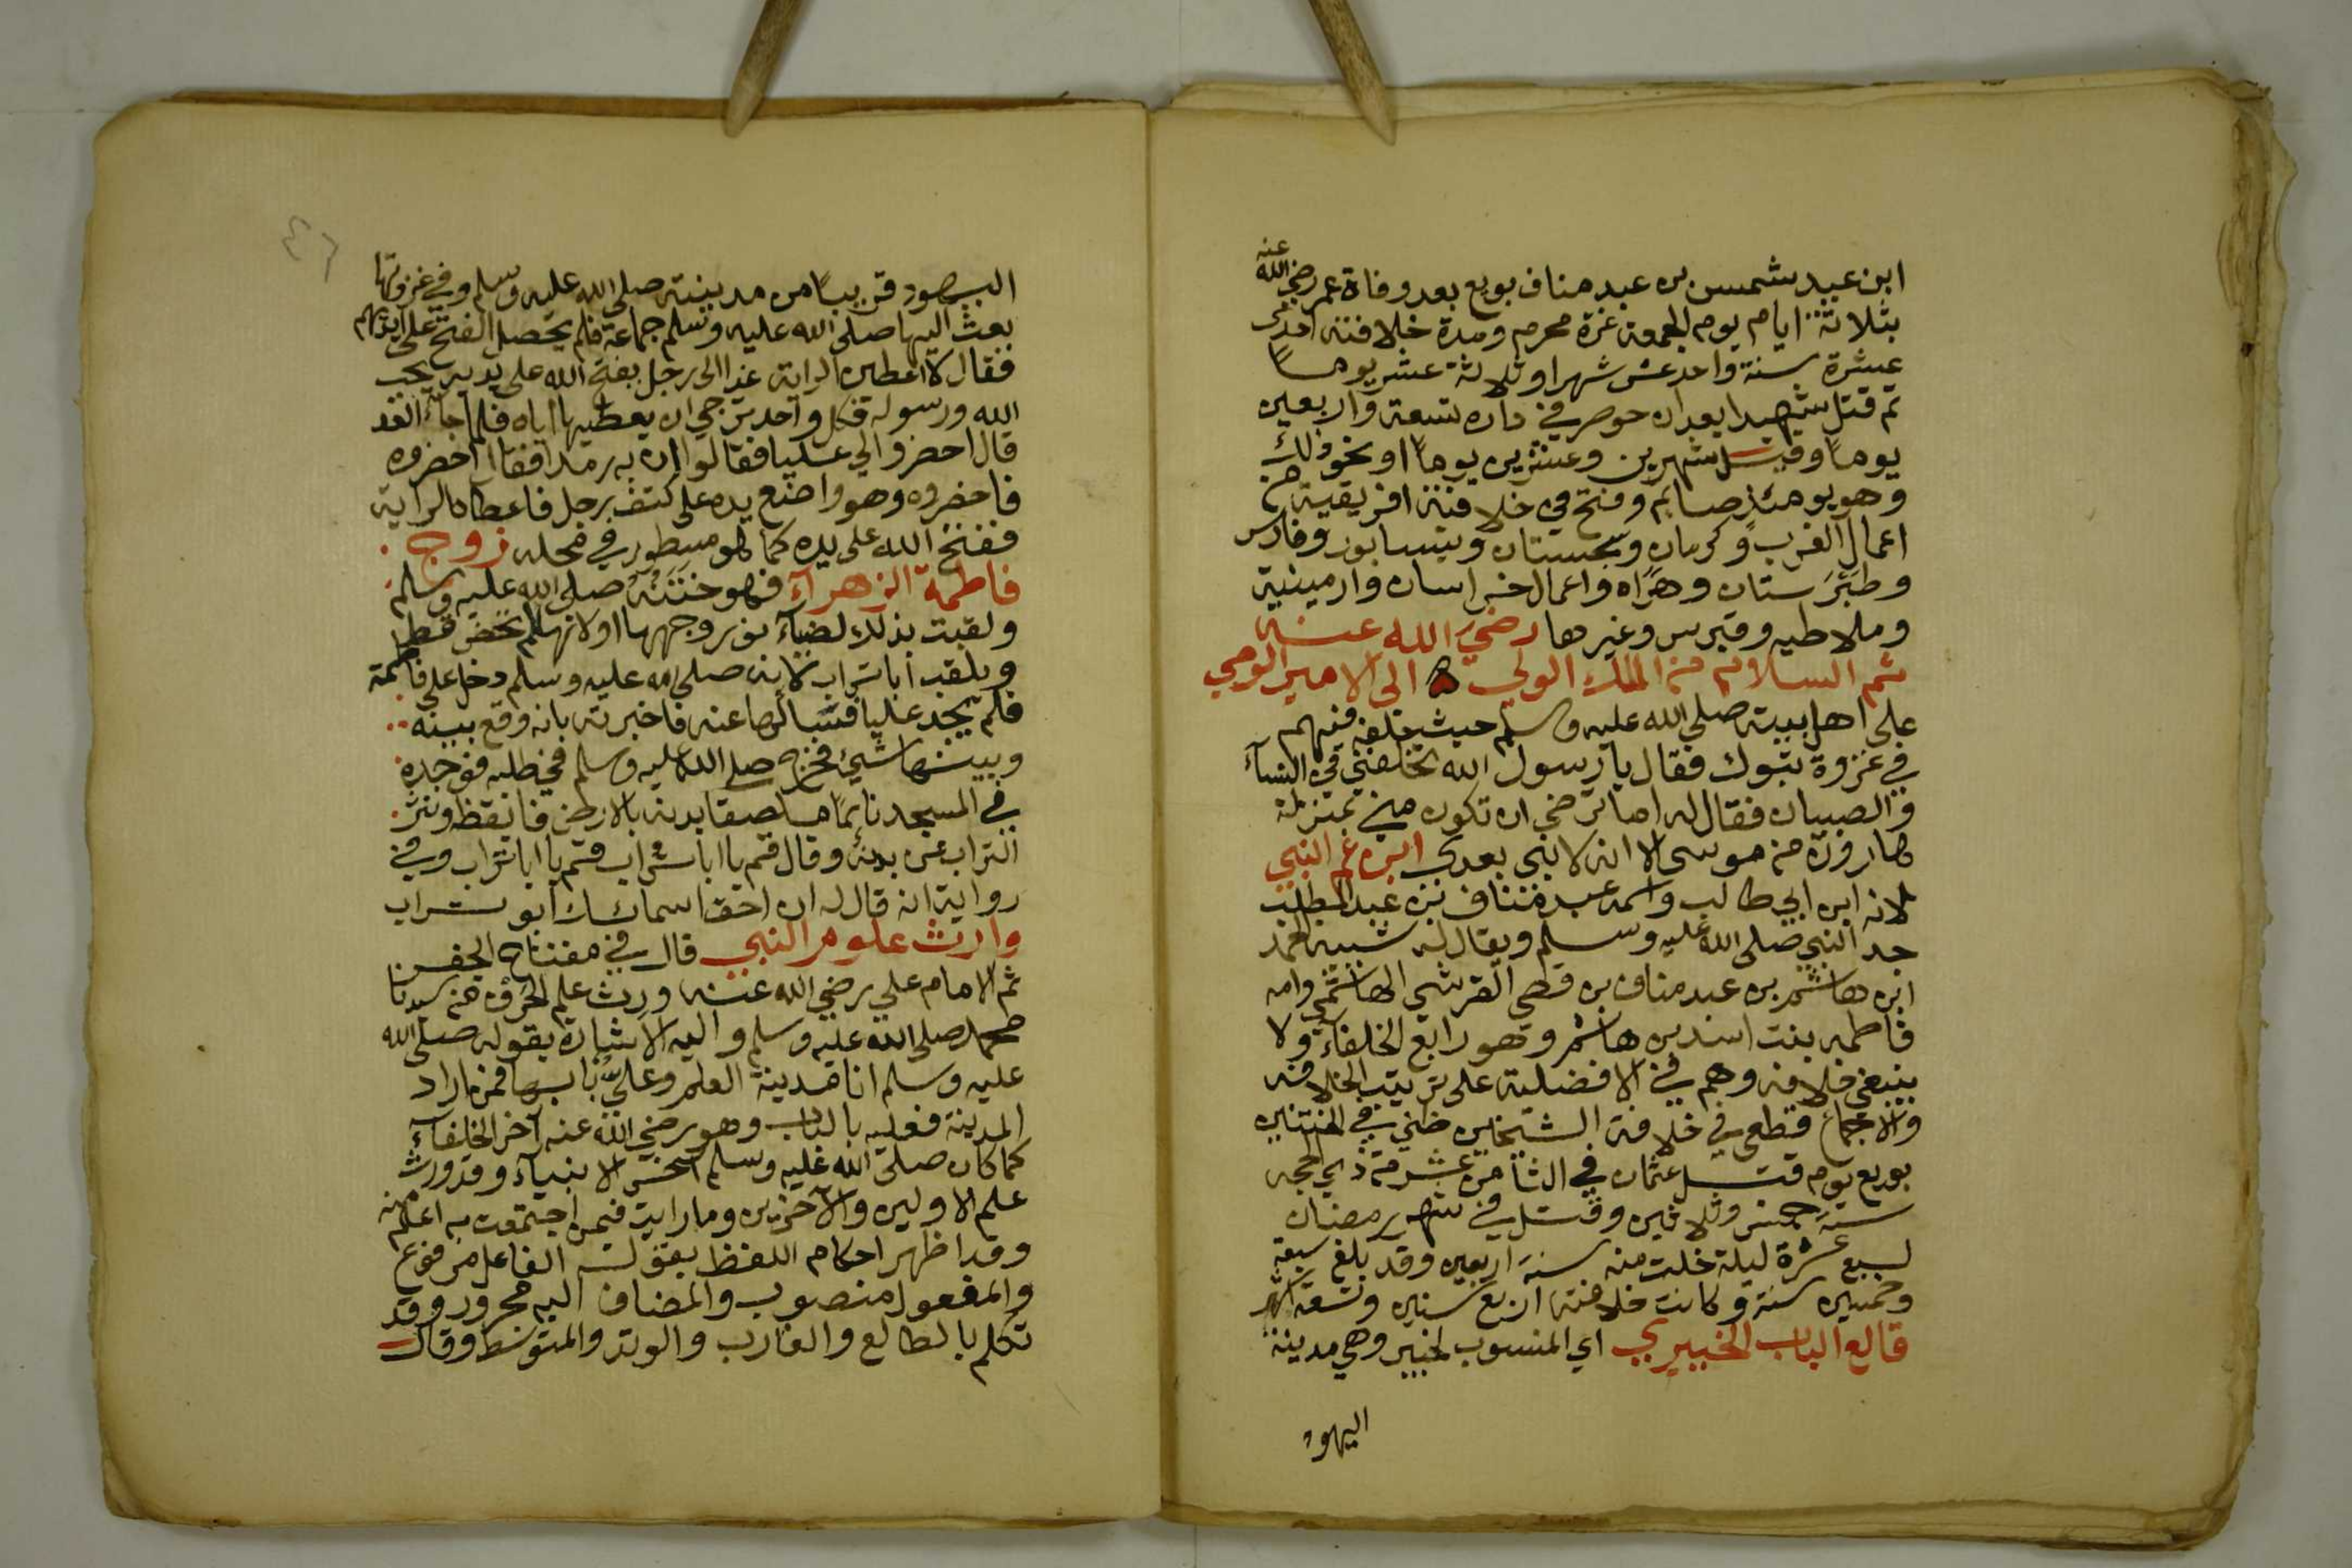 ابن عبد شمس بن عبد مناف بويع بعد وفاة عمر رضي الله عنه
بثلاثة ايام يوم الجمعة غرة محرم ومدة خلافته احدى
عشرة سنة واحد عشر شهرا وثلاثة عشر يوما
ثم قتل شهيدا بعد ان حوصر في داره تسعة واربعين
يوماً وقيل شهرين وعشرين يوماً او نحو ذلك
وهو يومئذ صايم وفتح في خلافته افريقية من
اعمال الغرب وكرمان وسجستان ونيسابور وفارس
وطبرستان وهراه واعمال خراسان وارمينية
وملاطيه وقبرس وغيرها رضي الله عنه
ثم السلام من الملك الولي ه الى الامير الوصي
على اهل بيته صلى الله عليه وسلم حيث خلفه فيهم
في غزوة تبوك فقال يا رسول الله تخلفني في النساء
والصبيان فقال له اما ترضى ان تكون مني بمنزلة
هارون من موسى الا انه لا نبي بعدي ابن عم النبي
لانه ابن ابي طالب واسمه عبد مناف بن عبد المطلب
جد النبي صلى الله عليه وسلم ويقال له شيبة الحمد
ابن هاشم بن عبد مناف بن قصي القرشي الهاشمي وامه
فاطمه بنت اسد بن هاشم وهو رابع الخلفاء ولا
ينبغي خلافه وهم في الافضلية على ترتيب الخلافه
والاجماع قطعي في خلافة الشيخين ظني في الختنين
بويع يوم قتل عثمان في الثامن عشر من ذي الحجه
سنة خمس وثلاثين وقتل في شهر رمضان
لسبع عشرة ليلة خلت منه سنة اربعين وقد بلغ سبعة
وخمسين سنة وكانت خلافته اربع سنين وتسعة اشهر
قالع الباب الخيبري اي المنسوب لخيبر وهي مدينة
اليهود
٤٦
اليهود قريباً من مدينته صلى الله عليه وسلم وفي غزوتها
بعث اليها صلى الله عليه وسلم جماعة فلم يحصل الفتح على ايديهم
فقال لاعطين الراية غدا الى رجل يفتح الله على يديه يحب
الله ورسوله فكل واحد ترجي ان يعطيها اياه فلما جاء الغد
قال احضروا لي عليا فقالوا ان به رمدا فقال احضروه
فاحضروه وهو واضع يده على كتف رجل فاعطاه الراية
ففتح الله على يده كما هو مسطور في محله زوج
فاطمة الزهراء فهو ختنه صلى الله عليه وسلم
ولقبت بذلك لضياء نور وجهها او لانها لم تحض قط
ويلقب ابا تراب لانه صلى الله عليه وسلم دخل على فاطمة
فلم يجد عليا فسالها عنه فاخبرته بانه وقع بينه
وبينها شيئ فخرج صلى الله عليه وسلم في طلبه فوجده
في المسجد نائماً ملصقا بدنه بالارض فايقظه ونثر
التراب عن بدنه وقال قم يا ابا تراب قم يا ابا تراب وفي
رواية انه قال له ان احق اسمائك ابو تراب
وارث علوم النبي قال في مفتاح الجفر
ثم الامام علي رضي الله عنه ورث علم الحرف من سيدنا
محمد صلى الله عليه وسلم واليه الاشارة بقوله صلى الله
عليه وسلم انا مدينة العلم وعليٌ بابها فمن اراد
المدينة فعليه بالباب وهو رضي الله عنه آخر الخلفاء
كما كان صلى الله عليه وسلم آخر الانبياء وقد ورث
علم الاولين والآخرين وما رايت فيمن اجتمعت به اعلم منه
وقد اظهر احكام اللفظ بقوله الفاعل مرفوع
والمفعول منصوب والمضاف اليه مجرور وقد
تكلم بالطالع والغارب والوتد والمتوسط وقال